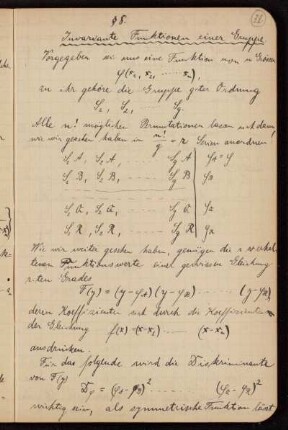 § 8.
Invariante Funktionen einer Gruppe
Vorgegeben sei uns eine Funktion von n Grössen
φ(x₁, x₂, ..... xₙ),
zu ihr gehöre die Gruppe gter Ordnung
S₁, S₂, S_g.
Alle n! möglichen Permutationen lassen sich dann,
wie wir gesehen haben in n!/g = r Serien anordnen:
S₁ A, S₂ A, ..... S_g A φ_A = φ
S₁ B, S₂ B, ..... S_g B φ_B
S₁ Q, S₂ Q, ..... S_g Q φ_Q
S₁ R, S₂ R, ..... S_g R φ_R
Wie wir weiter gesehen haben, genügen die r
Funktionswerte einer gewissen Gleichung
rten Grades
F(y) = (y-φ_A)(y-φ_B) ..... (y-φ_R),
deren Koeffizienten sich durch die Koeffizienten
der Gleichung f(x) = (x-x₁) ..... (x-xₙ)
ausdrücken.
Für das folgende wird die Diskriminante
von F(y)
D_φ = (φ_A-φ_B)² ..... (φ_Q-φ_R)²
wichtig sein, als symmetrische Funktion lässt